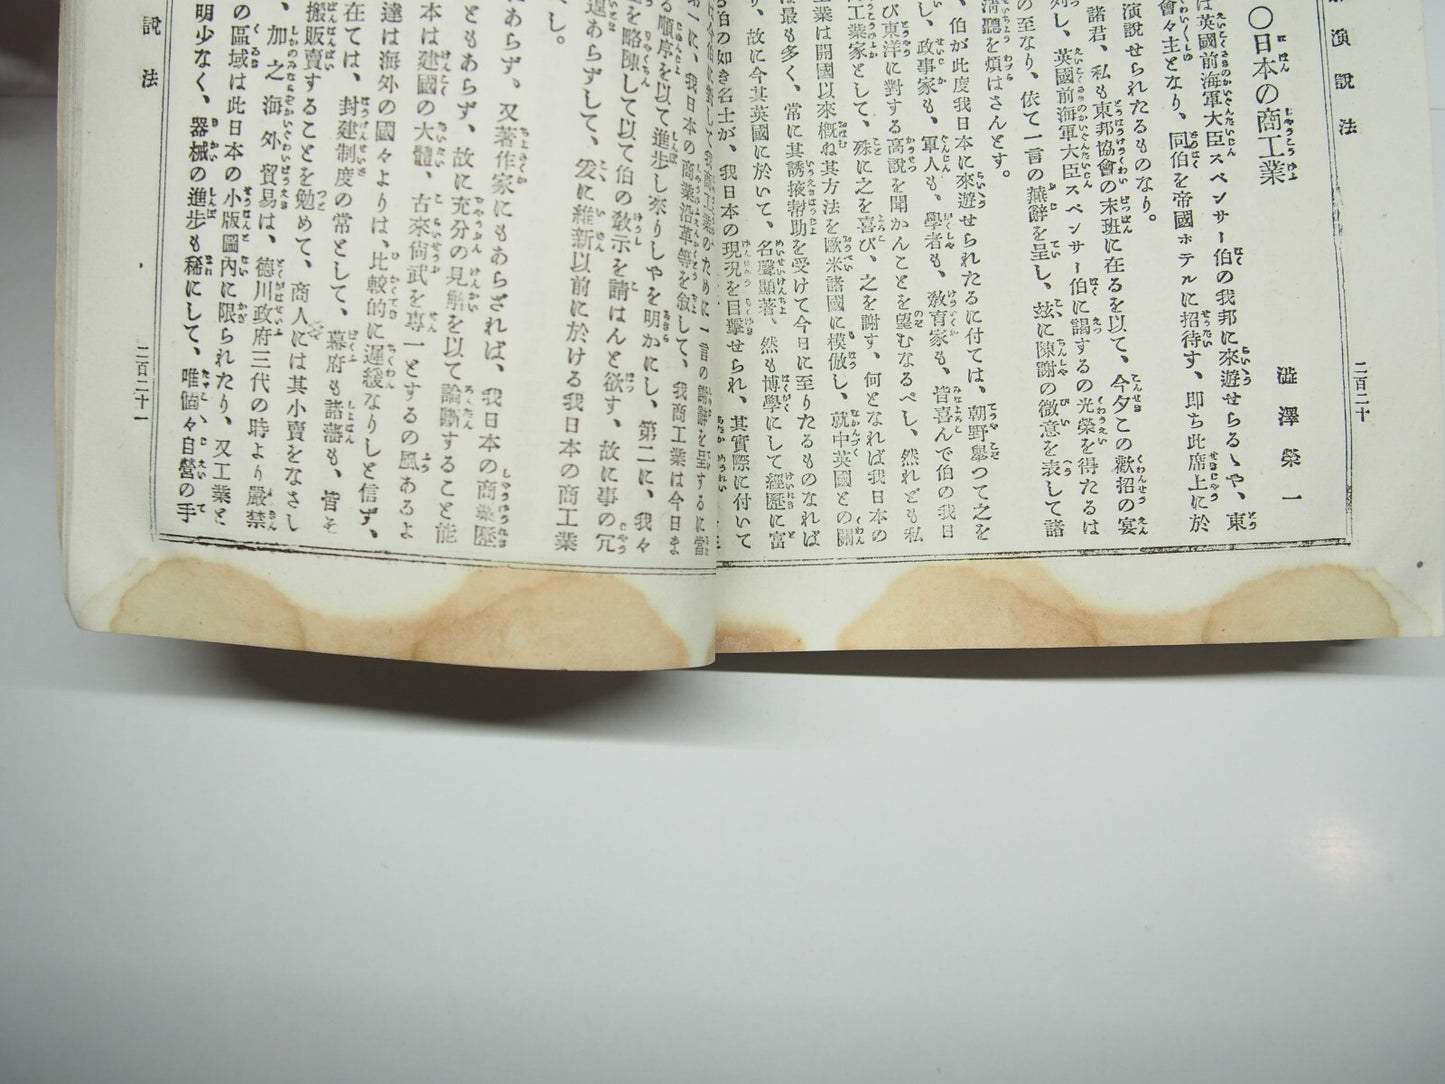 演說法
二百二十
○日本の商工業
澁澤榮一
は英國前海軍大臣スペンサー伯の我邦に來遊せらるゝや、東
會々主となり、同伯を帝國ホテルに招待す、卽ち此席上に於
演說せられたるものなり。
諸君、私も東邦協會の末班に在るを以て、今夕この歡招の宴
列し、英國前海軍大臣スペンサー伯に謁するの光榮を得たるは
の至なり、依て一言の蕪辭を呈し、玆に陳謝の微意を表して諸
淸聽を煩はさんとす。
、伯が此度我日本に來遊せられたるに付ては、朝野擧つて之を
し、政事家も、軍人も、學者も、敎育家も、皆喜んで伯の我日
び東洋に對する高說を聞かんことを望むなるべし、然れども私
工業家として、殊に之を喜び、之を謝す、何となれば我日本の
工業は開國以來槪ね其方法を歐米諸國に模倣し、就中英國との關
は最も多く、常に其誘掖幇助を受けて今日に至りたるものなれば
り、故に今其英國に於いて、名聲顯著、然も博學にして經歷に富
る伯の如き名士が、我日本の現況を目擊せられ、其實際に付いて
說法
二百二十一
第一に、我日本の商業沿革等を叙して、我商工業は今日ま
る順序を以て進步し來りしやを明かにし、第二に、我々
を略陳して以て伯の敎示を請はんと欲す、故に事の冗
遑あらずして、爰に維新以前に於ける我日本の商工業
べし。
にあらず、又著作家にもあらざれば、我日本の商業歷
ともあらず、故に充分の見解を以て論斷すること能
本は建國の大體、古來尙武を專一とするの風あるよ
達は海外の國々よりは、比較的に遲緩なりしと信ず、
在ては、封建制度の常として、幕府も諸藩も、皆そ
搬販賣することを勉めて、商人には其小賣をなさし
、加之海外貿易は、德川政府三代の時より嚴禁
の區域は此日本の小版圖內に限られたり、又工業と
明少なく、器械の進步も稀にして、唯個々自營の手